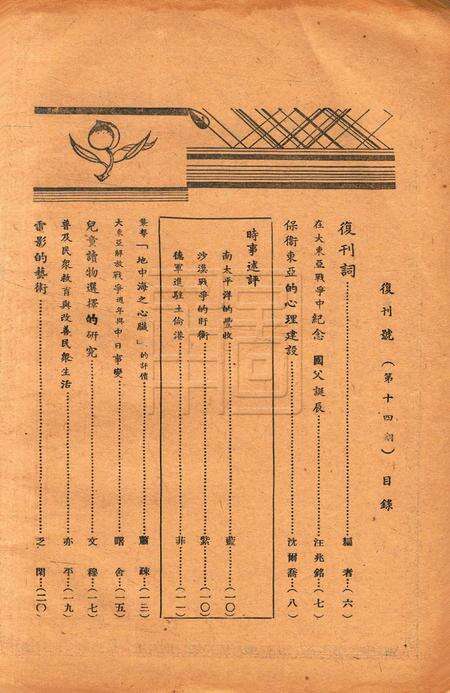 復刊號(第十四期)目錄
復刊詞……編者(六)
在大東亞戰爭中紀念 國父誕辰……汪兆銘(七)
保衛東亞的心理建設……沈爾喬(八)
時事述評
南太平洋的豐收……藍(一〇)
沙漠戰爭的盱衡……紫(一〇)
德軍進駐土倫港……菲(一一)
「地中海之心臟」的評價……蕭疎(一三)
大東亞解放戰爭週年與中日事變……曙舍(一五)
兒童讀物選擇的研究……文穆(一七)
普及民衆教育與改善民衆生活……亦平(一九)
電影的藝術……芝閑(二〇)